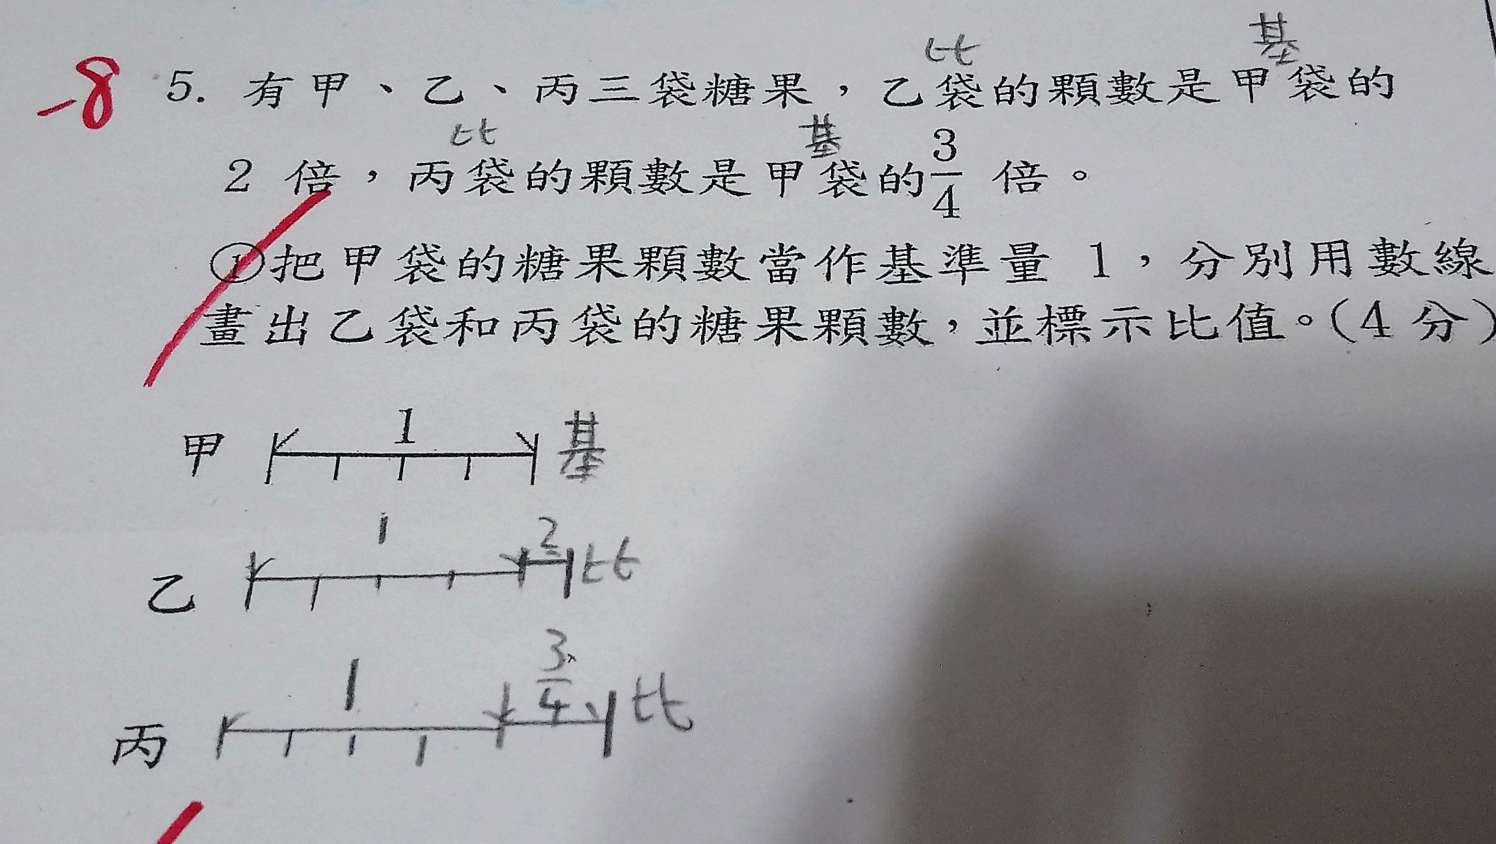 比 基
-8 5. 有甲、乙、丙三袋糖果，乙袋的顆數是甲袋的
比 基
2 倍，丙袋的顆數是甲袋的3/4 倍。
①把甲袋的糖果顆數當作基準量 1，分別用數線
畫出乙袋和丙袋的糖果顆數，並標示比值。(4 分)
甲 1 基
乙 1 2 比
丙 1 3/4 比